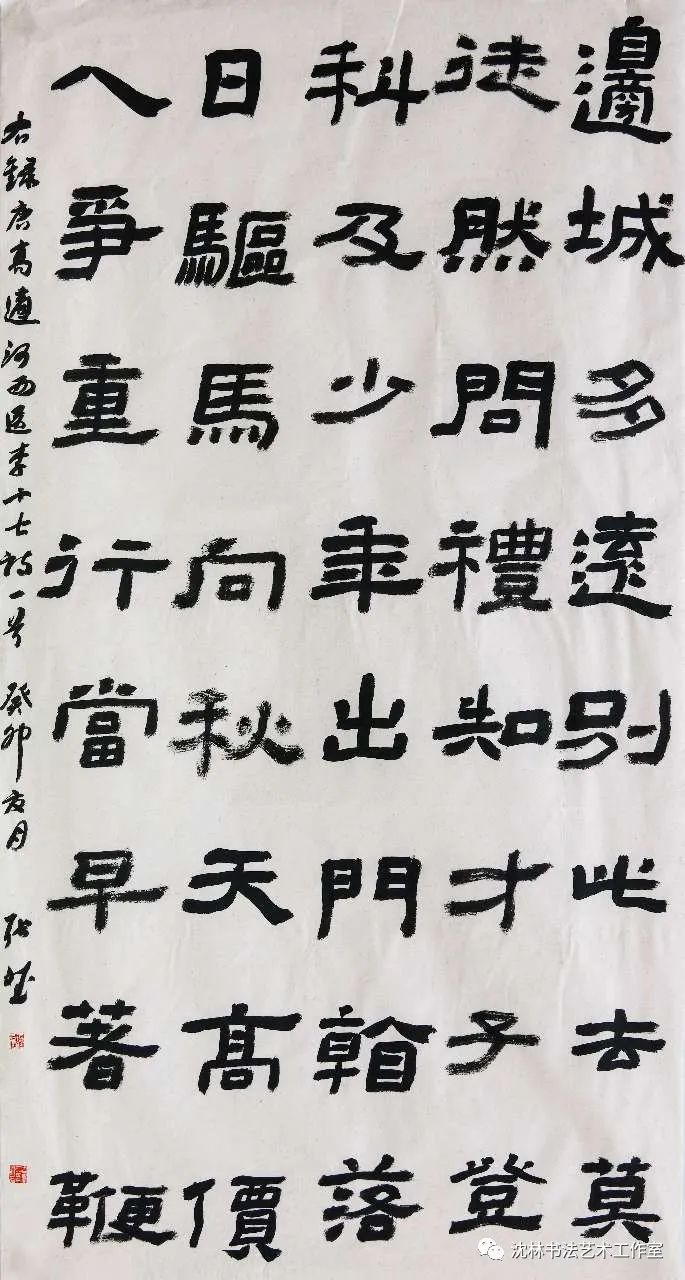 邊城多遠別此去莫
徒然問禮知才子登
科及少年出門看落
日驅馬向秋天高價
人爭重行當早著鞭
右錄唐高適河西送李十七詩一首 癸卯夏月 张
沈林书法艺术工作室